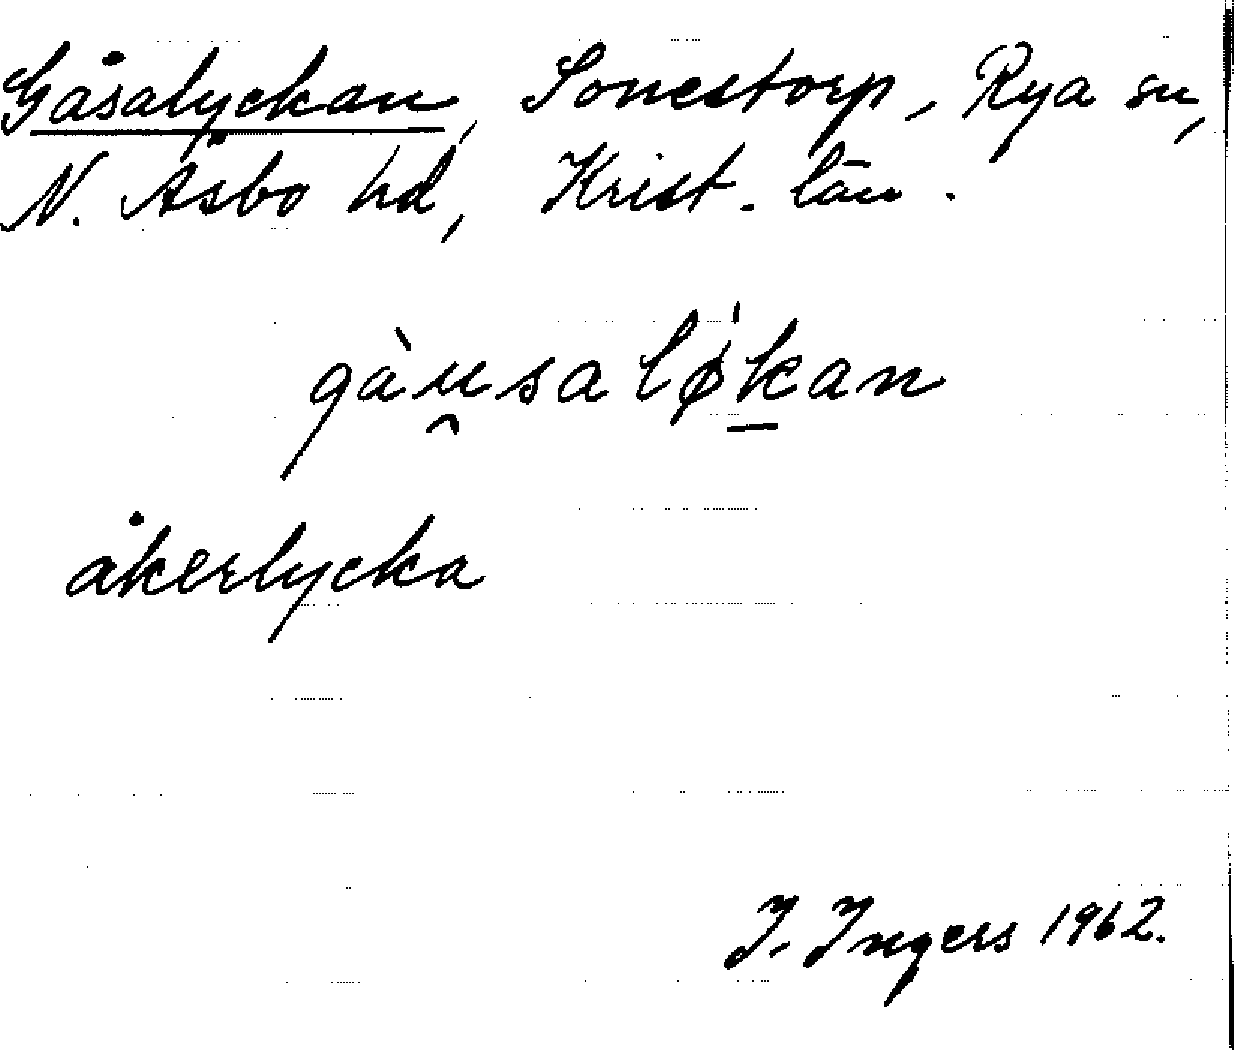 Gåsalyckan, Sonestorp, Rya sn,
N. Åsbo hd, Krist. län.
gàu̯saløkan
åkerlycka
I. Ingers 1962.